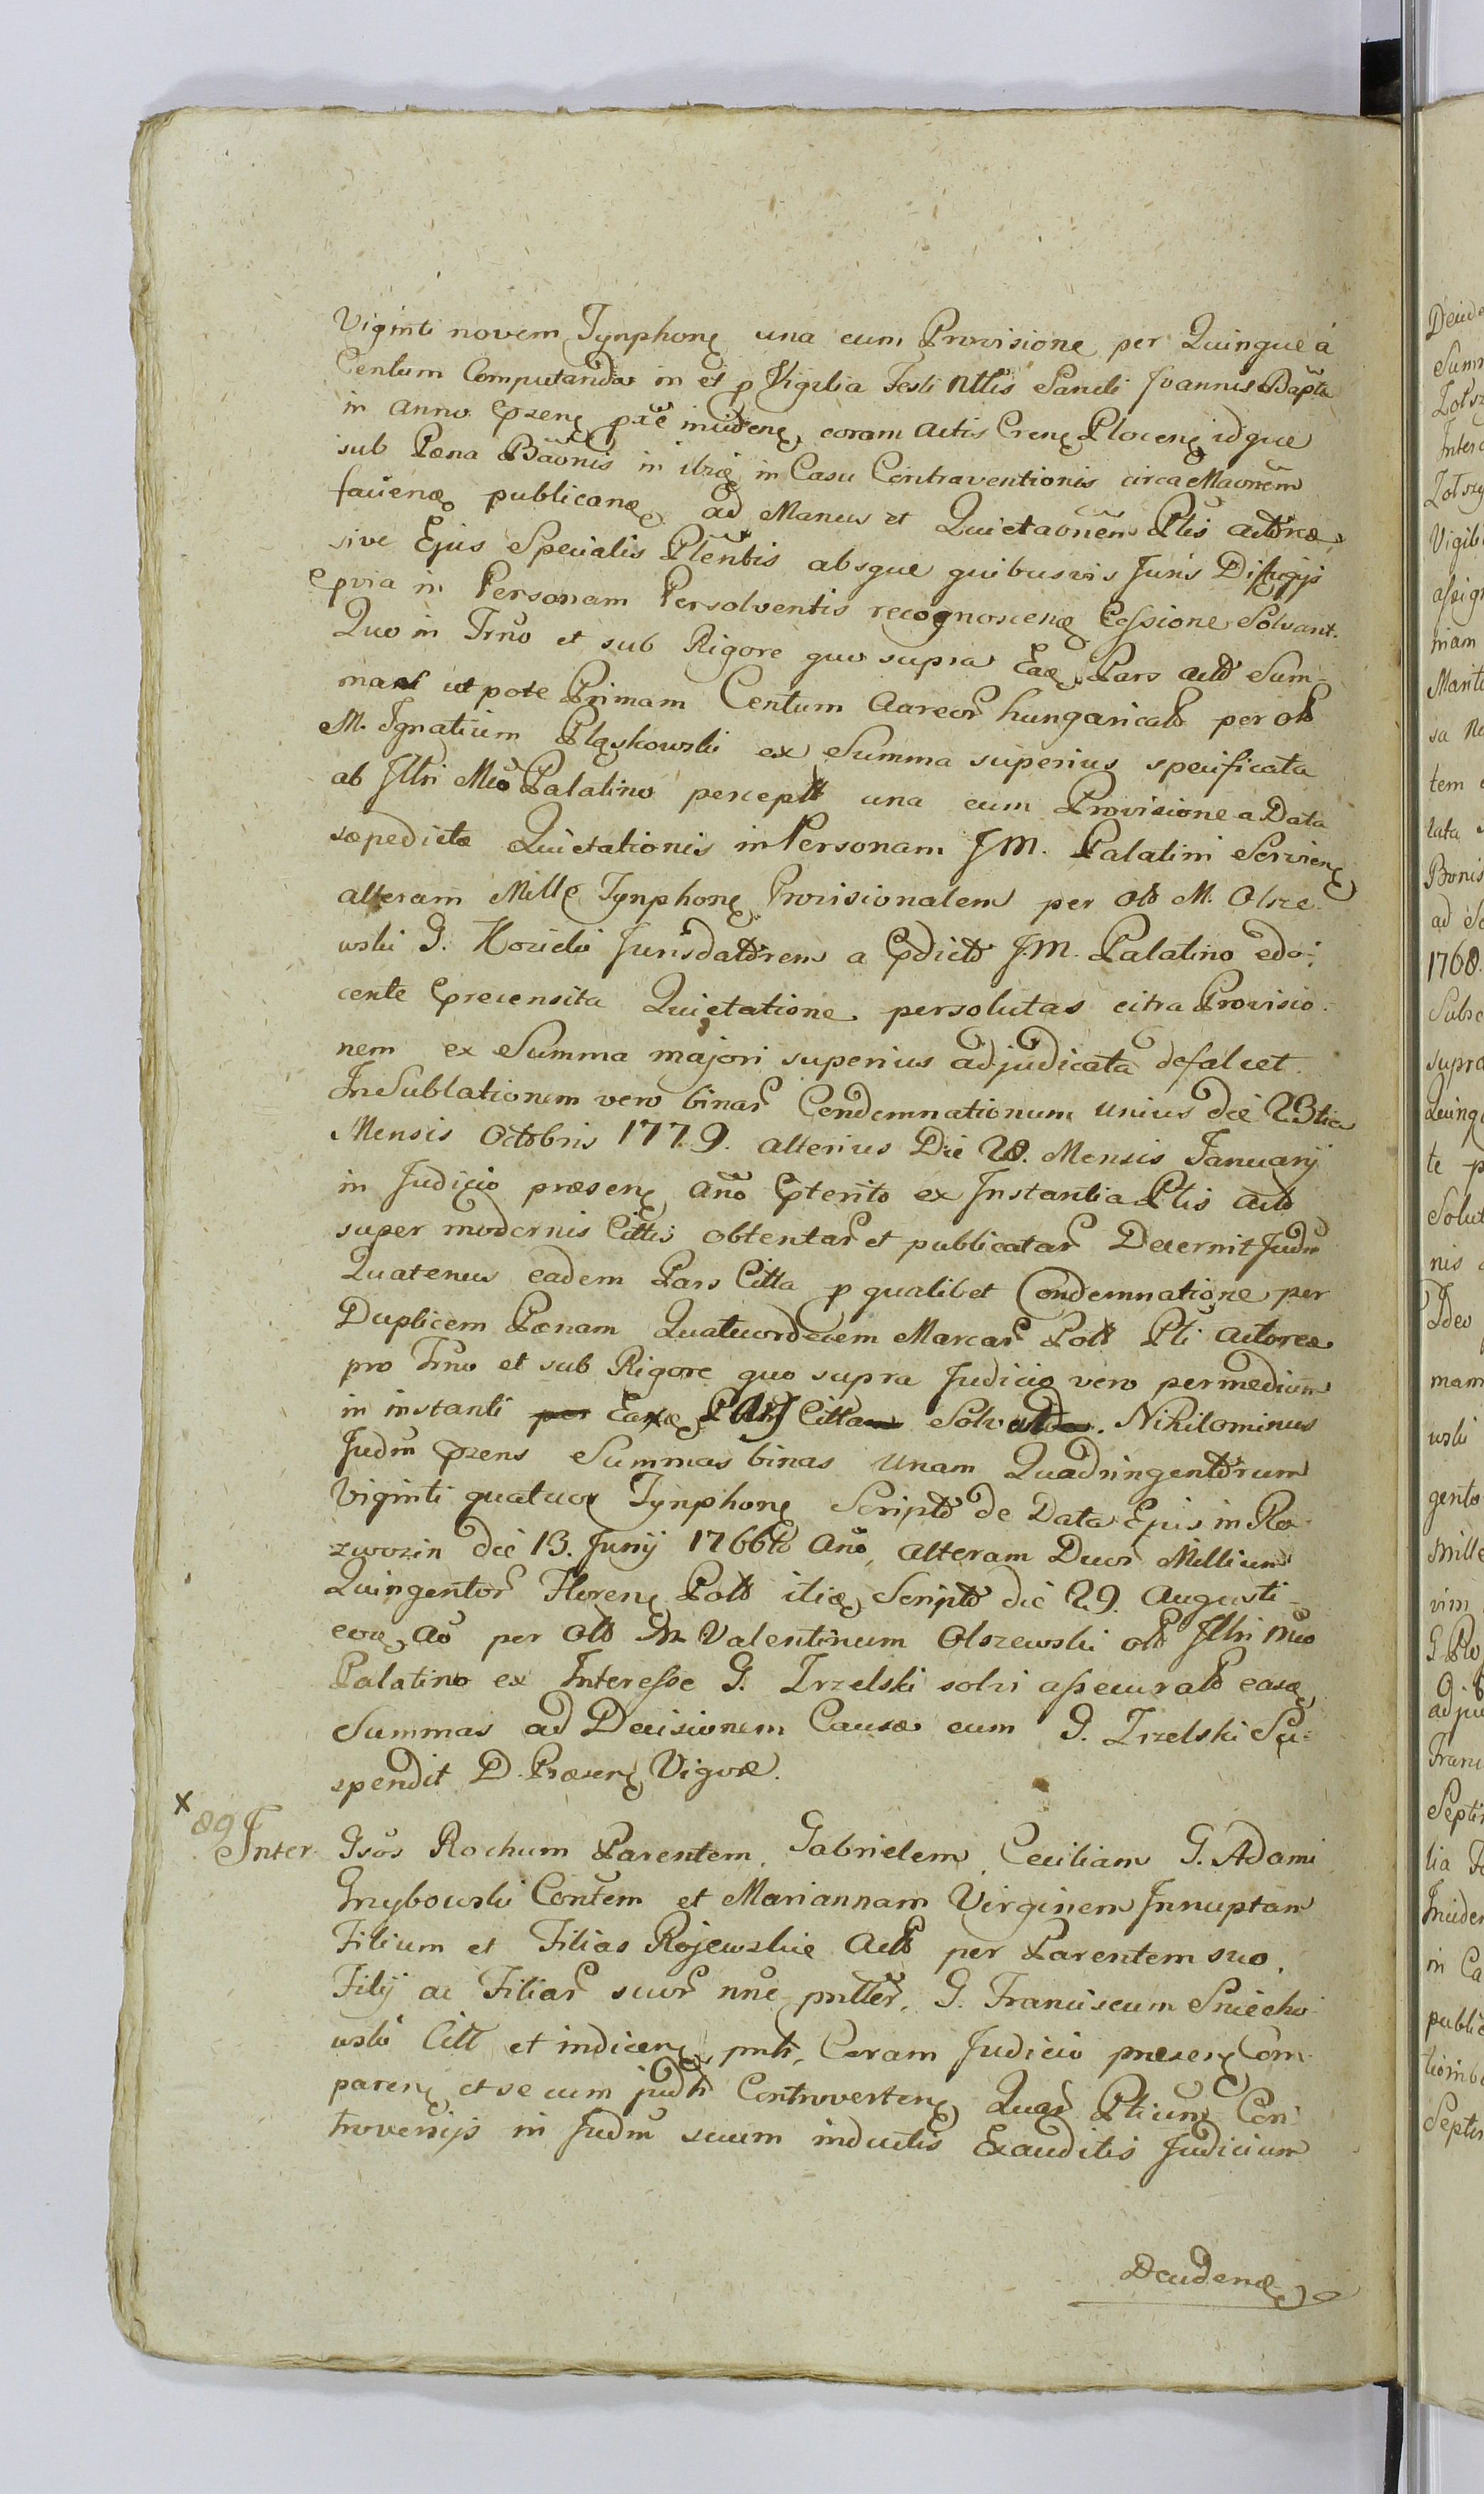 Viginti novem Tynphonę una cum Provisione per Quinque á
Centum Computanda in et p Vigilia Festi Nttis Sancti Joannis Bapta
in anno prenę incidenę, coram Actis Crenę Plocenę idque
sub Pæna Bãonis in in Casu Contraventionis circa
favienæ publicanæ ad Manus et Quietaõnem Ptis Actoreæ
sive Ejus Specialis Plentis absque quibusvis Juris Diffugijs
prvia in Personam Persolventis recognoscenæ Cessione Solvant.
Quo in Trno et sub Rigore quo supra Eaæ Pars Act Sum-
mas ut pote Primam Centum Aureor hungarical per ol
M. Ignatium Pląskowski ex Summa superius specificata
ab Jllri Mco Palatino percept una cum Provisione a Data
sæpedictæ Quietationis in Personam J M. Palatini Servienę
alteram Mille Tynphonę Provisionalem per Ol M. Olsze-
wski G. Kozicki Jurisdatorem a pdicto J.M. Palatino edo-
cente precensita Quietatione persolutas citra Provisio-
nem ex Summa majori superius adjudicata defalcet.
In Sublationem vero binar Condemnationum unius die 23tia
Mensis Octobris 1779. alterius Die 28. Mensis Januarij
in Judicio præsenę Año pterito ex Instantia Ptis Act
super modernis Cittis obtentar et publicatar Decernit Judm
Quatenus eadem Pars Citta p qualibet Condemnatione per
Duplicem Pænam Quatuordecem Marcar Pol Pti Actoreæ
pro Trno et sub Rigore quo supra Judicio vero per medium
in instanti per Eaæ Pars Citta Solvat. Nihilominus
Judm przens Summas binas unam Quadringentorum
Viginti quatuor Tynphonę Scripto de Data Ejus in Ro-
zwozin die 13. Junij 1766to Año, alteram Duor Millium
Quingentor Florenę Pol itiæ Scripto die 29. Augusti
eoæ, Ao per Ol M Valentinum Olszewski ol Jllri Mco
Palatino ex Interesse G. Zrzelski solvi assecurat easæ
Summas ad Decisionem Causæ cum G. Zrzelski Su-
spendit D. Præsenę Vigore.
x
89
Inter Gsos Rochum Parentem, Gabrielem, Ceciliam G. Adami
Grzybowski Contem et Mariannam Virginem Innuptam
Filium et Filias Rojewskie Act per Parentem suo,
Filij ac Filiar suor nne pntter, G. Franciscum Sniecho-
wski Citt et indicenę pntr, Coram Judicio præsenę Com-
parenę et se cum jcdtr Controvertenę Quar Ptium Con-
troversijs in Judm suum inductis Exauditis Judicium
Deudenæ